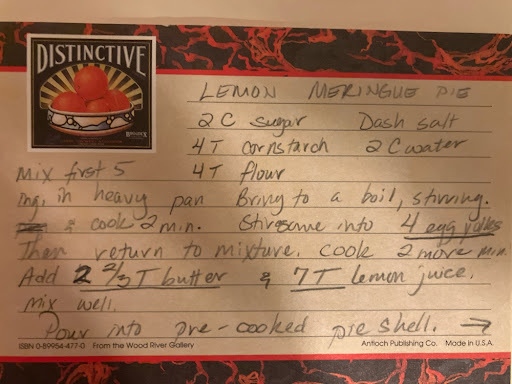 DISTINCTIVE
LEMON MERINGUE PIE
2 C sugar Dash salt
4 T cornstarch 2 C water
4 T flour
Mix first 5
ing. in heavy pan Bring to a boil, stirring.
& cook 2 min. Stir some into 4 egg yolks
Then return to mixture. Cook 2 more min.
Add 2 2/3 T butter & 7 T lemon juice.
Mix well.
Pour into pre-cooked pie shell. →
ISBN 0-89954-477-0 From the Wood River Gallery Antioch Publishing Co. Made in U.S.A.